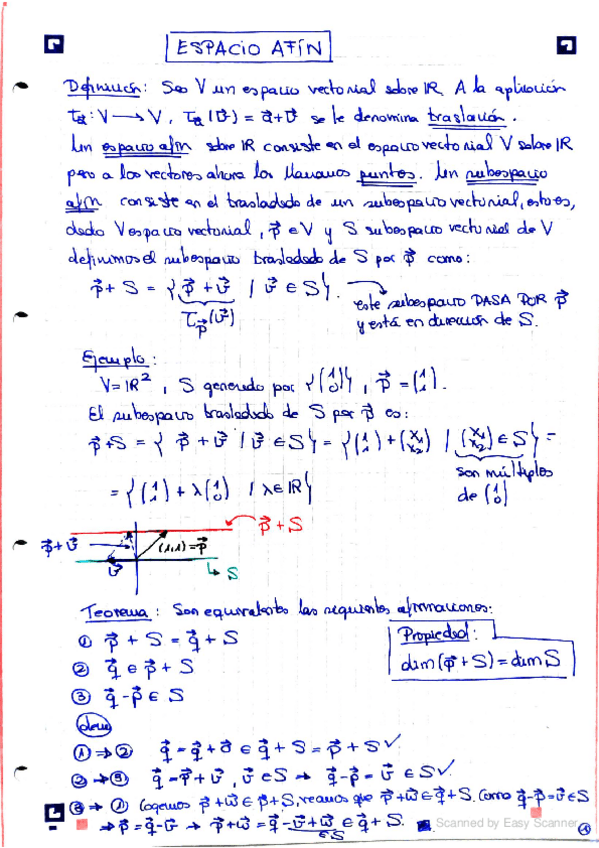 ESPACIO AFÍN
Definición: Sea V un espacio vectorial sobre IR. A la aplicación
τa⃗ : V → V, τa⃗(v⃗) = a⃗+v⃗ se le denomina traslación.
Un espacio afín sobre IR consiste en el espacio vectorial V sobre IR
pero a los vectores ahora los llamamos puntos. Un subespacio
afín consiste en el trasladado de un subespacio vectorial, esto es,
dado V espacio vectorial, p⃗ ∈ V y S subespacio vectorial de V
definimos el subespacio trasladado de S por p⃗ como:
p⃗ + S = { p⃗ + v⃗ / v⃗ ∈ S }.
τp⃗(v⃗)
este subespacio PASA POR p⃗
y está en dirección de S.
Ejemplo:
V = IR², S generado por {(1 0)}, p⃗ = (1 1).
El subespacio trasladado de S por p⃗ es:
p⃗+S = { p⃗ + v⃗ / v⃗ ∈ S } = {(1 1) + (x₁ x₂) / (x₁ x₂) ∈ S } =
son múltiplos
de (1 0)
= {(1 1) + λ(1 0) / λ ∈ IR}
p⃗ + S
p⃗+v⃗
(1,1) = p⃗
v⃗
S
Teorema: Son equivalentes las siguientes afirmaciones:
① p⃗ + S = q⃗ + S
② q⃗ ∈ p⃗ + S
③ q⃗ - p⃗ ∈ S
Propiedad:
dim(p⃗ + S) = dim S
dem
① ⇒ ② q⃗ = q⃗ + 0⃗ ∈ q⃗ + S = p⃗ + S ✓
② ⇒ ③ q⃗ = p⃗ + v⃗, v⃗ ∈ S → q⃗ - p⃗ = v⃗ ∈ S ✓
③ ⇒ ① Cogemos p⃗ + w⃗ ∈ p⃗ + S, veamos que p⃗ + w⃗ ∈ q⃗ + S. Como q⃗ - p⃗ = v⃗ ∈ S
→ p⃗ = q⃗ - v⃗ → p⃗ + w⃗ = q⃗ - v⃗ + w⃗ ∈ q⃗ + S.
∈ S
Scanned by Easy Scanner
①